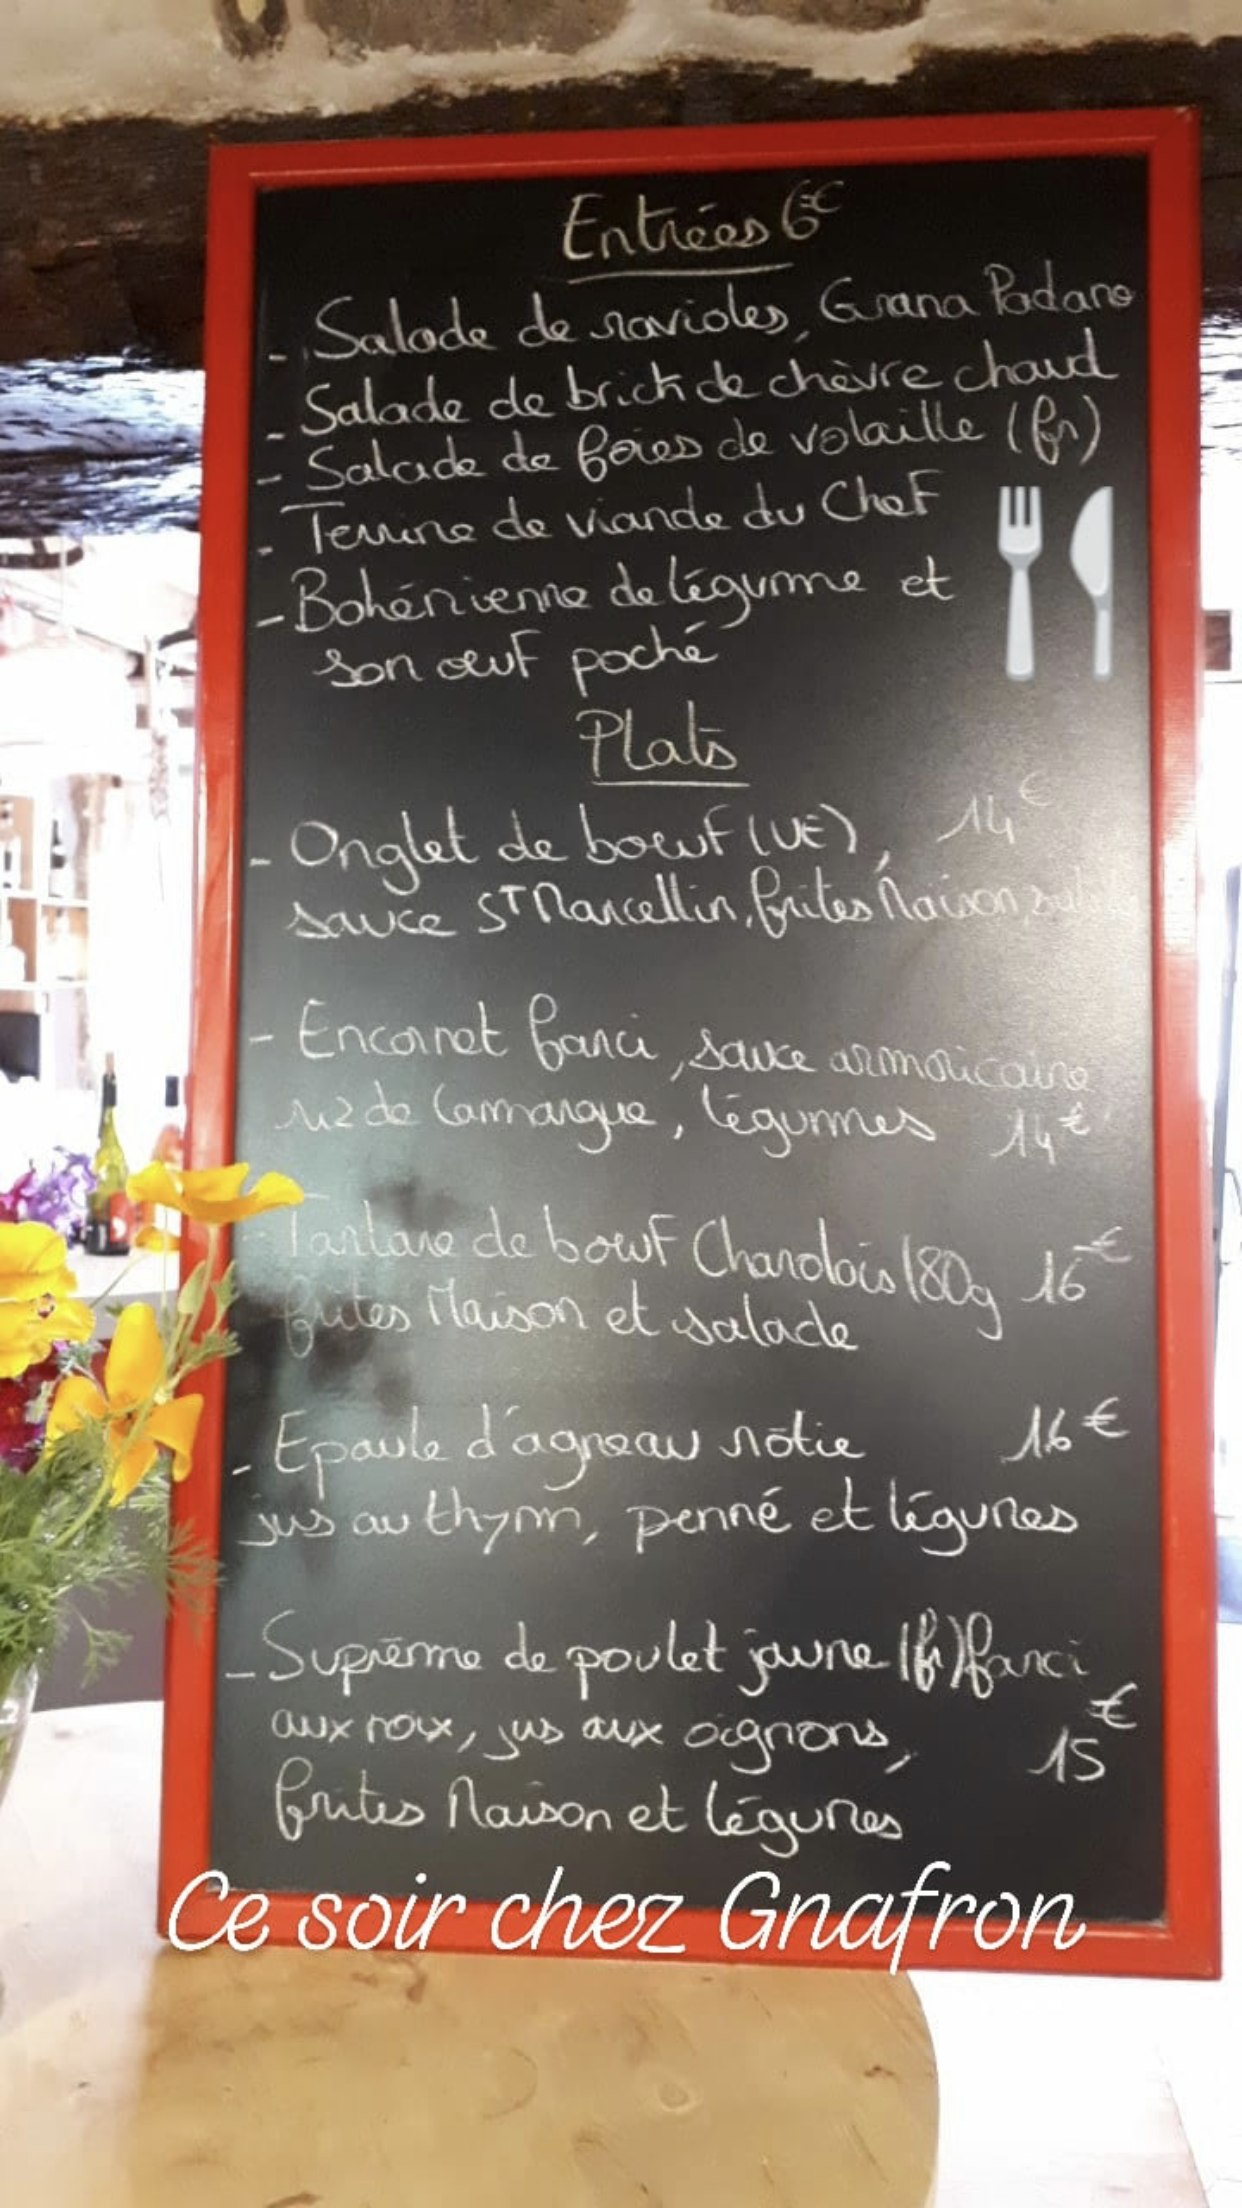 Entrées 6€
- Salade de ravioles, Grana Padano
- Salade de brick de chèvre chaud
- Salade de foies de volaille (fr)
- Terrine de viande du Chef
- Bohémienne de légume et
son œuf poché
Plats
- Onglet de bœuf (UE), 14€
sauce ST Marcellin, frites Maison, salade
- Encornet farci, sauce armoricaine
riz de Camargue, légumes 14€
- Tartare de bœuf Charolais 180g 16€
frites Maison et salade
- Epaule d'agneau rôtie 16€
jus au thym, penné et légumes
- Suprême de poulet jaune (fr) farci
aux noix, jus aux oignons, 15€
frites Maison et légumes
Ce soir chez Gnafron